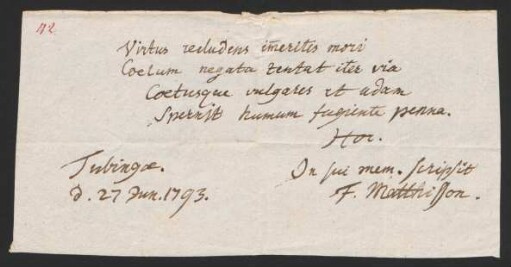 42
Virtus recludens imeritis mori
Coelum negata tentat iter via
Coetusque vulgares et udam
Spernit humum fugiente penna.
Hor.
Tubingæ.
d. 27 Jun. 1793.
In sui mem. scripsit
F. Matthisson.